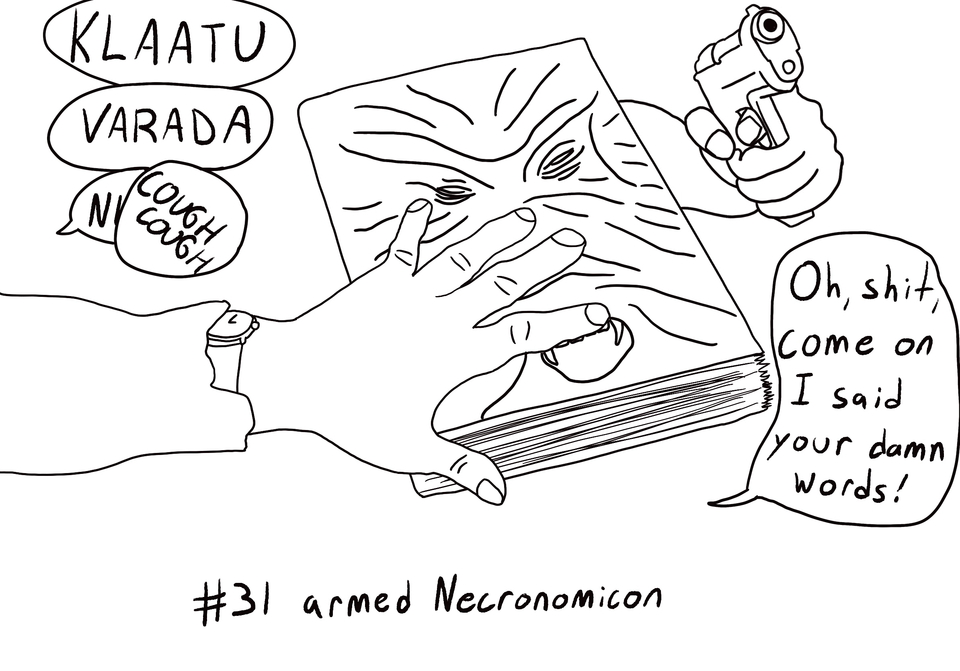 KLAATU
VARADA
NI
COUGH
COUGH
Oh, shit,
come on
I said
your damn
words!
#31 armed Necronomicon